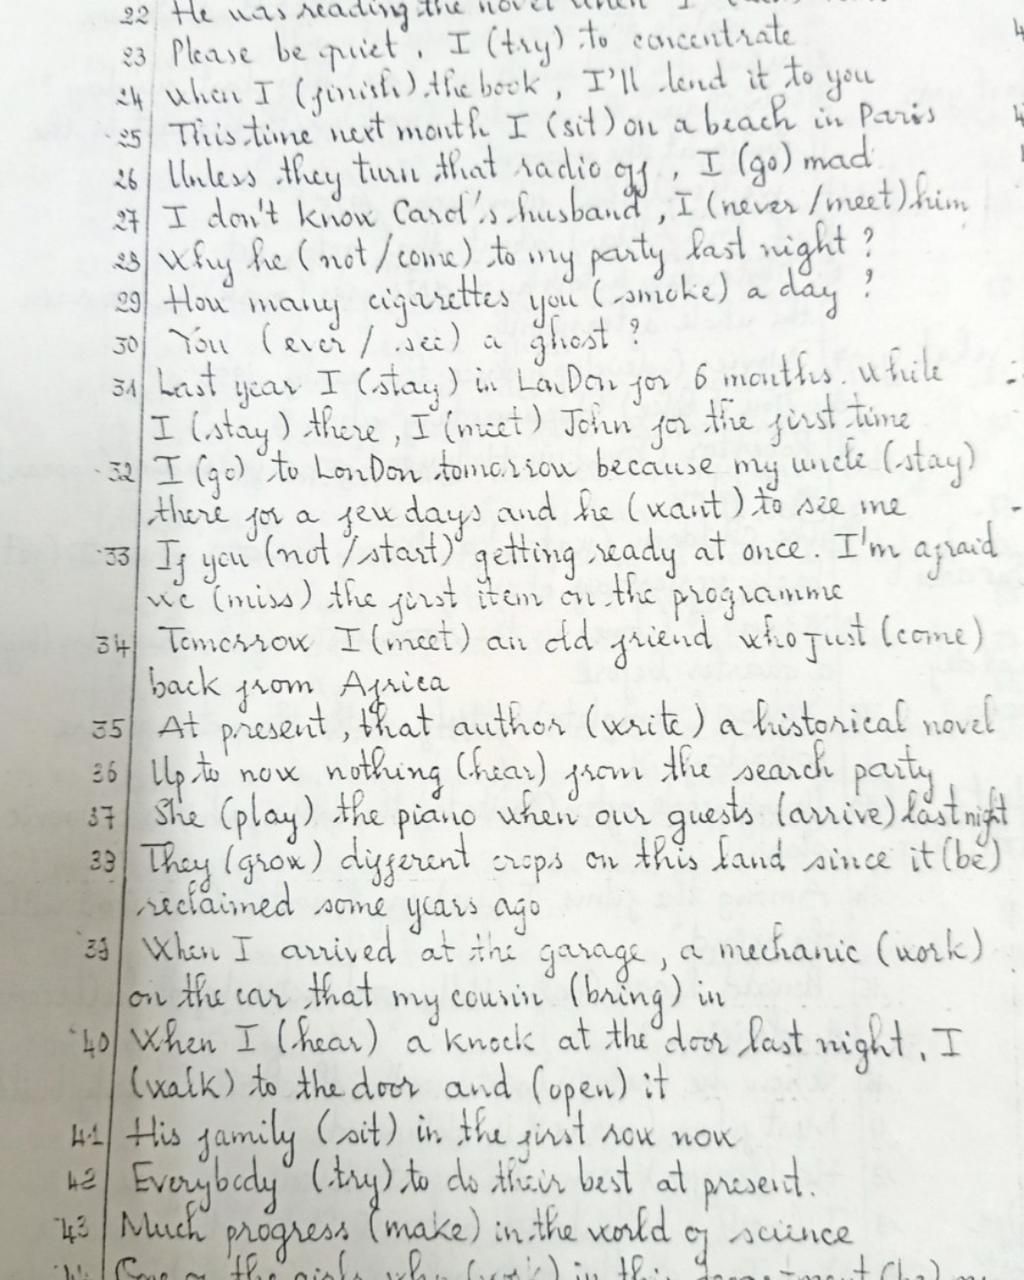 22 He was reading the novel when I
23 Please be quiet. I (try) to concentrate
24 When I (finish) the book, I'll lend it to you
25 This time next month I (sit) on a beach in Paris
26 Unless they turn that radio off, I (go) mad
27 I don't know Carol's husband, I (never/meet) him
28 Why he (not/come) to my party last night?
29 How many cigarettes you (smoke) a day?
30 You (ever/see) a ghost?
31 Last year I (stay) in LonDon for 6 months. While
I (stay) there, I (meet) John for the first time
32 I (go) to LonDon tomorrow because my uncle (stay)
there for a few days and he (want) to see me
33 If you (not/start) getting ready at once. I'm afraid
we (miss) the first item on the programme
34 Tomorrow I (meet) an old friend who just (come)
back from Africa
35 At present, that author (write) a historical novel
36 Up to now nothing (hear) from the search party
37 She (play) the piano when our guests (arrive) last night
38 They (grow) different crops on this land since it (be)
reclaimed some years ago
39 When I arrived at the garage, a mechanic (work)
on the car that my cousin (bring) in
40 When I (hear) a knock at the door last night, I
(walk) to the door and (open) it
41 His family (sit) in the first row now
42 Everybody (try) to do their best at present.
43 Much progress (make) in the world of science